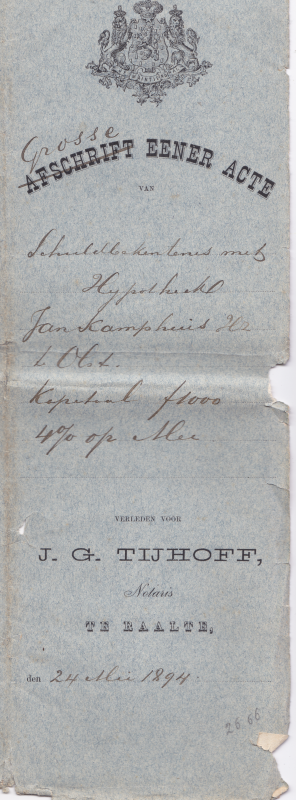 Grosse
AFSCHRIFT EENER ACTE
VAN
Schuldbekentenis met
Hypotheek
Jan Kamphuis
t Olst.
Kapitaal f1000
4% op Mei
VERLEDEN VOOR
J. G. TIJHOFF,
Notaris
TE RAALTE,
den 24 Mei 1894.
26.66